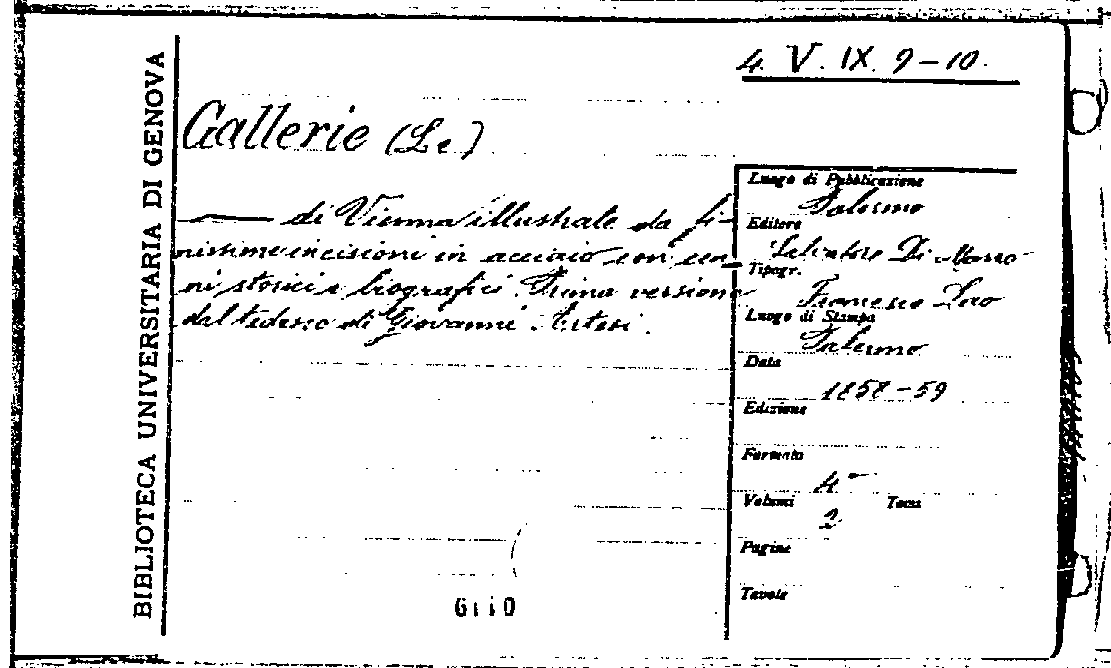 BIBLIOTECA UNIVERSITARIA DI GENOVA
4. V. IX. 9-10.
Gallerie (Le)
di Vienna illustrate da fi-
nissime incisioni in acciaio con cen-
ni storici e biografici. Prima versione
dal tedesco di Giovanni
Luogo di Pubblicazione
Palermo
Editore
Salvatore Di Marzo
Tipogr.
Francesco Lao
Luogo di Stampa
Palermo
Data
1858-59
Edizione
Formato
4°
Volumi Tomi
2
Pagine
Tavole